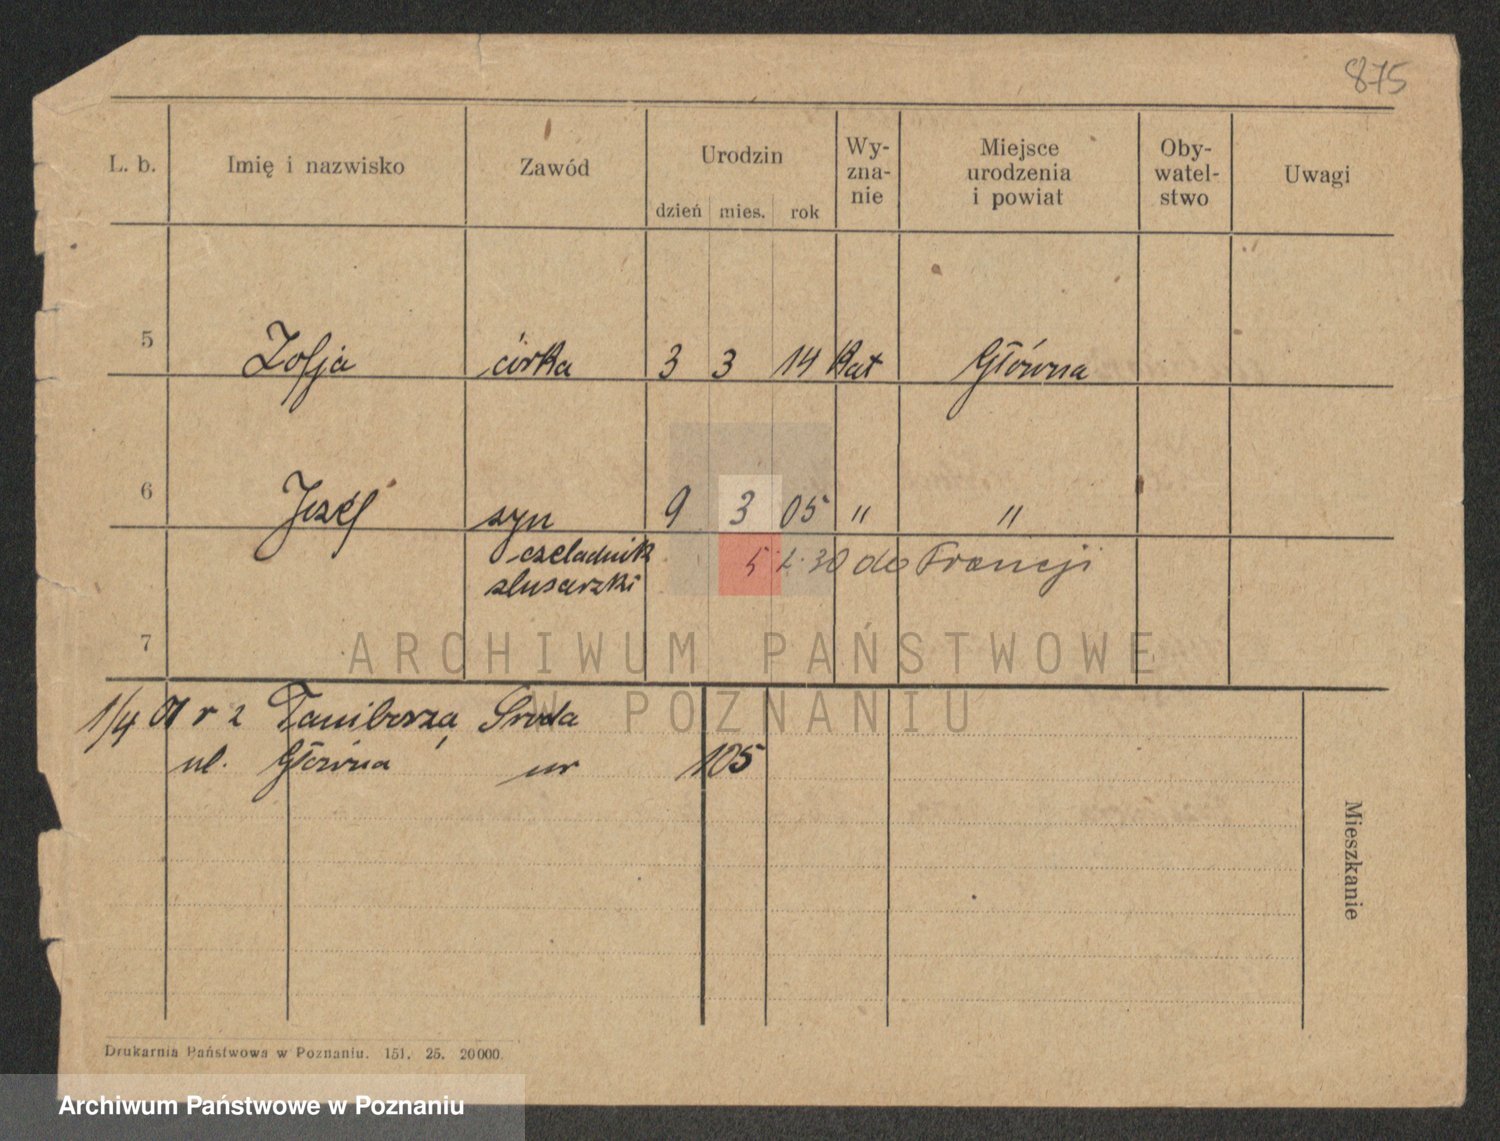 875
L. b. Imię i nazwisko Zawód Urodzin Wy-zna-nie Miejsce urodzenia i powiat Oby-watel-stwo Uwagi
dzień mies. rok
5 Zofja córka 3 3 14 kat Główna
6 Józef syn 9 3 05 " "
czeladnik 30 do Francji
slusarzki
7
ARCHIWUM PAŃSTWOWE
W POZNANIU
1/4 01 r z Sroda
ul. Główna nr 105
Mieszkanie
Drukarnia Państwowa w Poznaniu. 151. 25. 20000.
Archiwum Państwowe w Poznaniu